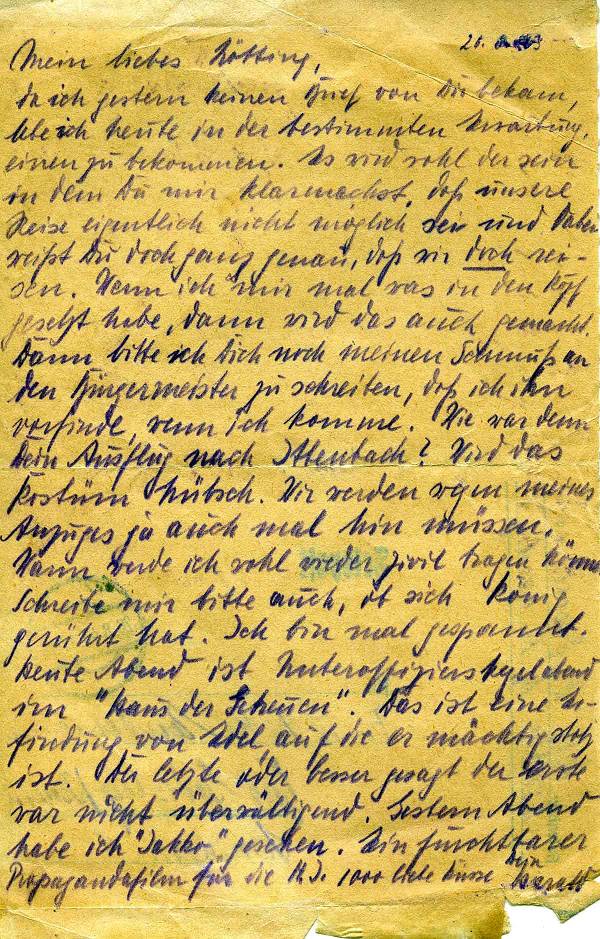 20. 3
Mein liebes Lötting,
da ich gestern keinen Brief von Dir bekam,
lebe ich heute in der bestimmten Erwartung,
einen zu bekommen. Es wird wohl der sein
in dem Du mir klarmachst, daß unsere
Reise eigentlich nicht möglich sei und dabei
weißt Du doch ganz genau, daß wir doch rei-
sen. Wenn ich mir mal was in den Kopf
gesetzt habe, dann wird das auch gemacht.
Dann bitte ich Dich noch meinen Schmuß an
den Bürgermeister zu schreiben, daß ich ihn
vorfinde, wenn ich komme. Wie war denn
Dein Ausflug nach Ittenbach? Wird das
Kostüm hübsch. Wir werden wegen meines
Anzuges ja auch mal hin müssen.
Wann werde ich wohl wieder zivil tragen können
Schreibe mir bitte auch, ob sich König
gerührt hat. Ich bin mal gespannt.
Heute Abend ist Unteroffizierskegelabend
im "Haus der Scheuen". Das ist eine Er-
findung von Edel auf die er mächtig stolz
ist. Der letzte oder besser gesagt der erste
war nicht überwältigend. Gestern Abend
habe ich "Jakko" gesehen. Ein furchtbarer
Propagandafilm für die H.J. 1000 liebe Küsse Dein Harald